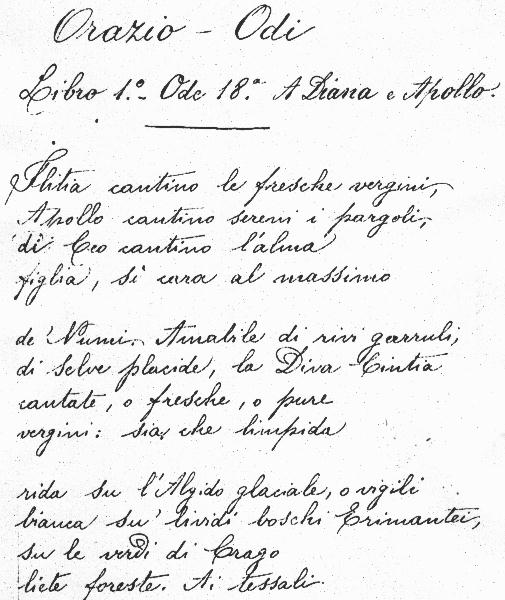 Orazio - Odi
Libro 1.º - Ode 18.ª A Diana e Apollo.
Ilitia cantino le fresche vergini,
Apollo cantino sereni i pargoli,
di Ceo cantino l'alma
figlia, sì cara al massimo
de' Numi. Amabile di rivi garruli,
di selve placide, la Diva Cintia
cantate, o fresche, o pure
vergini: sia che limpida
rida su l'Algido glaciale, o vigili
bianca su' lividi boschi Erimantei,
su le verdi di Crago
liete foreste. Ai tessali